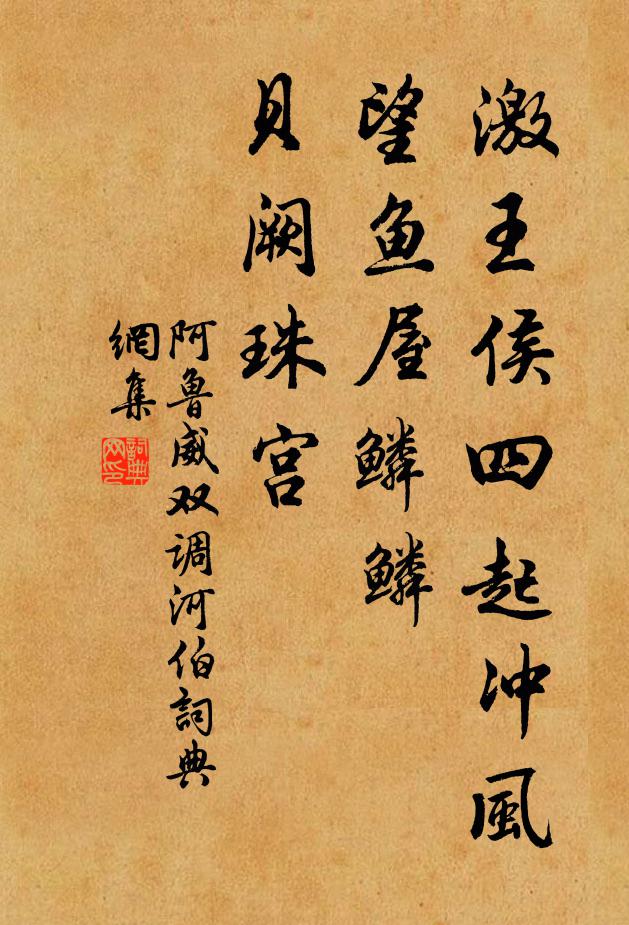 激王侯四起冲風
望鱼屋鳞鳞
貝阙珠宫
阿鲁威双调河伯詞典
網集
詞典
网印